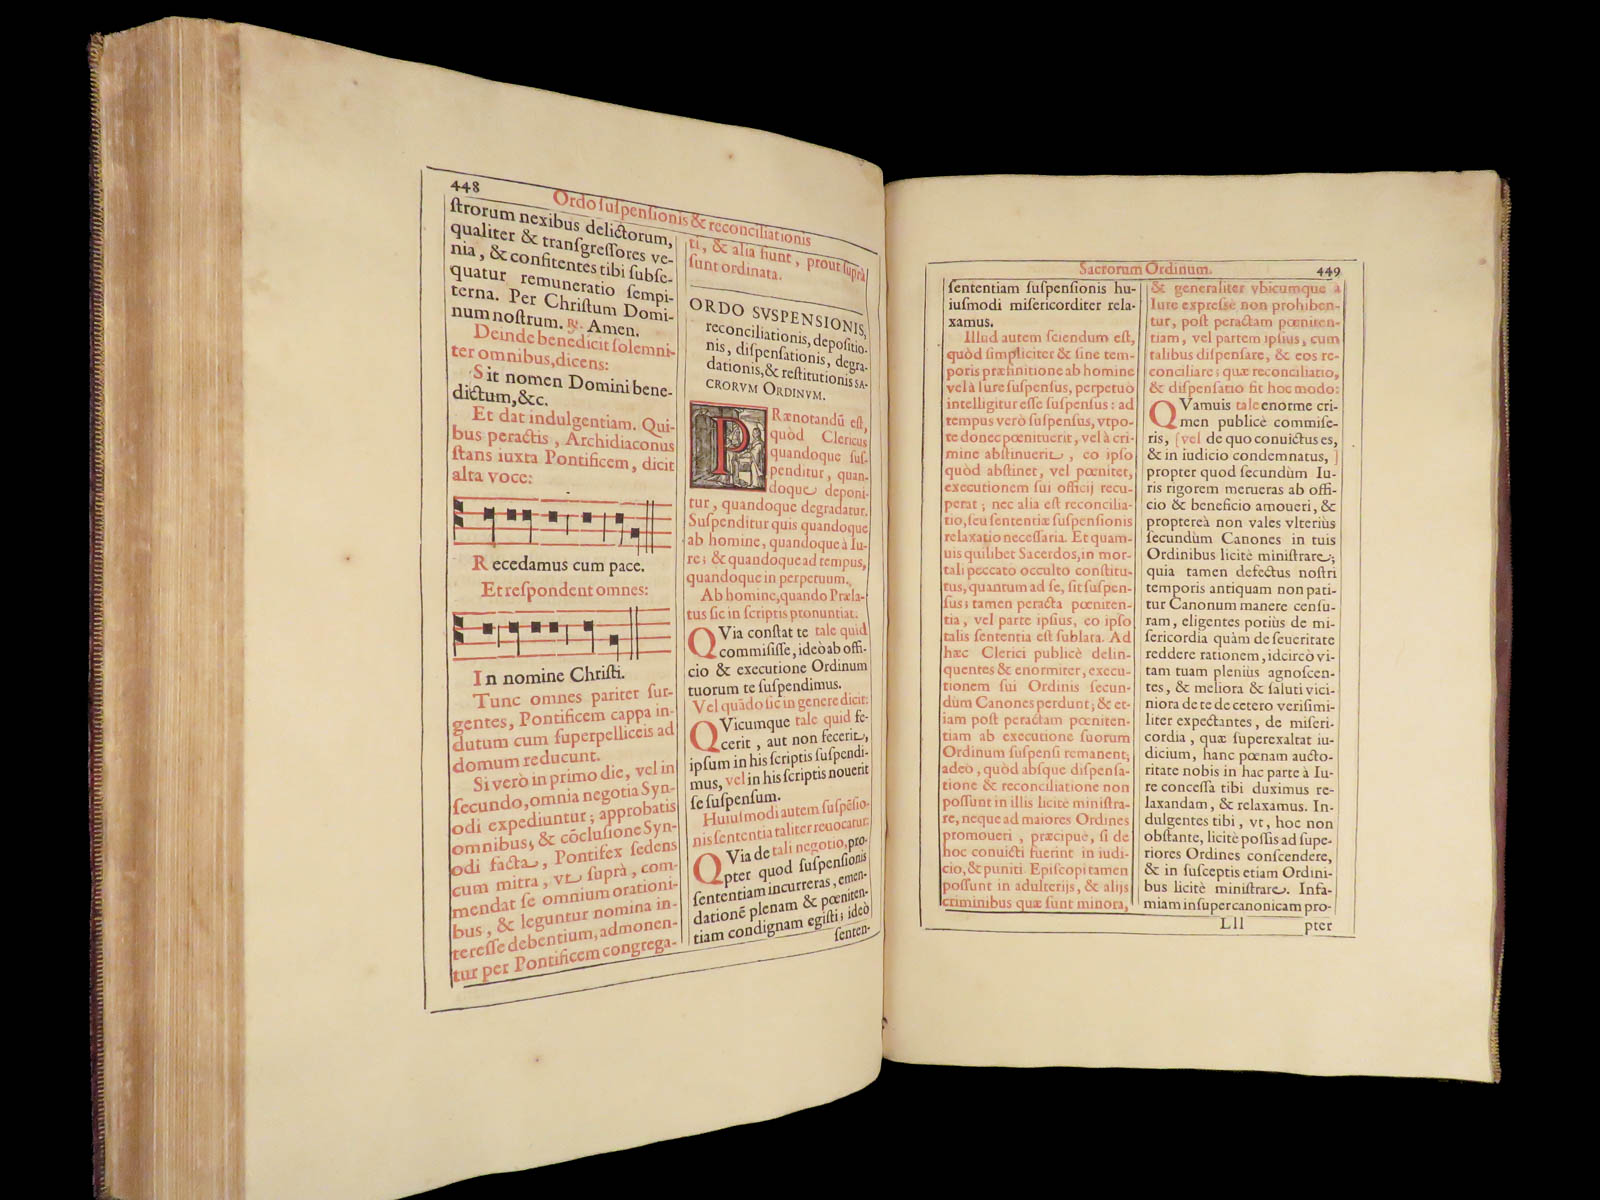 448
Ordo suspensionis & reconciliationis
ſtrorum nexibus delictorum,
qualiter & tranſgreſſores ve-
nia, & confitentes tibi ſubſe-
quatur remuneratio ſempi-
terna. Per Chriſtum Domi-
num noſtrum. ℟. Amen.
Deinde benedicit ſolemni-
ter omnibus, dicens:
Sit nomen Domini bene-
dictum, &c.
Et dat indulgentiam. Qui-
bus peractis, Archidiaconus
ſtans iuxta Pontificem, dicit
alta voce:
Recedamus cum pace.
Et reſpondent omnes:
In nomine Chriſti.
Tunc omnes pariter ſur-
gentes, Pontificem cappa in-
dutum cum ſuperpelliceis ad
domum reducunt.
Si verò in primo die, vel in
ſecundo, omnia negotia Syn-
odi expediuntur; approbatis
omnibus, & cõcluſione Syn-
odi facta, Pontifex ſedens
cum mitra, vt ſuprà, com-
mendat ſe omnium orationi-
bus, & leguntur nomina in-
tereſſe debentium, admonen-
tur per Pontificem congrega-
ti, & alia fiunt, prout ſuprà
ſunt ordinata.
ORDO SVSPENSIONIS,
reconciliationis, depoſitio-
nis, diſpenſationis, degra-
dationis, & reſtitutionis SA-
CRORVM ORDINVM.
PRænotandũ eſt,
quòd Clericus
quandoque ſuſ-
penditur, quan-
doque deponi-
tur, quandoque degradatur.
Suſpenditur quis quandoque
ab homine, quandoque à Iu-
re; & quandoque ad tempus,
quandoque in perpetuum.
Ab homine, quando Præla-
tus ſic in ſcriptis pronuntiat.
QVia conſtat te tale quid
commiſiſſe, ideò ab offi-
cio & executione Ordinum
tuorum te ſuſpendimus.
Vel quãdo ſic in genere dicit:
QVicumque tale quid fe-
cerit, aut non fecerit,
ipſum in his ſcriptis ſuſpendi-
mus, vel in his ſcriptis nouerit
ſe ſuſpenſum.
Huiuſmodi autem ſuſpẽſio-
nis ſententia taliter reuocatur:
QVia de tali negotio, pro-
pter quod ſuſpenſionis
ſententiam incurreras, emen-
dationẽ plenam & pœniten-
tiam condignam egiſti; ideò
ſenten-
Sacrorum Ordinum.
449
ſententiam ſuſpenſionis hu-
iuſmodi miſericorditer rela-
xamus.
Illud autem ſciendum eſt,
quòd ſimpliciter & ſine tem-
poris præfinitione ab homine
vel à Iure ſuſpenſus, perpetuò
intelligitur eſſe ſuſpenſus: ad
tempus verò ſuſpenſus, vtpo-
te donec pœnituerit, vel à cri-
mine abſtinuerit, eo ipſo
quòd abſtinet, vel pœnitet,
executionem ſui officij recu-
perat; nec alia eſt reconcilia-
tio, ſeu ſententiæ ſuſpenſionis
relaxatio neceſſaria. Et quam-
uis quilibet Sacerdos, in mor-
tali peccato occulto conſtitu-
tus, quantum ad ſe, ſit ſuſpen-
ſus; tamen peracta pœniten-
tia, vel parte ipſius, eo ipſo
talis ſententia eſt ſublata. Ad
hæc Clerici publicè delin-
quentes & enormiter, execu-
tionem ſui Ordinis ſecun-
dùm Canones perdunt; & et-
iam poſt peractam pœniten-
tiam ab executione ſuorum
Ordinum ſuſpenſi remanent;
adeò, quòd abſque diſpenſa-
tione & reconciliatione non
poſſunt in illis licitè miniſtra-
re, neque ad maiores Ordines
promoueri, præcipuè, ſi de
hoc conuicti fuerint in iudi-
cio, & puniti. Epiſcopi tamen
poſſunt in adulterijs, & alijs
criminibus quæ ſunt minora,
& generaliter vbicumque à
Iure expreſsè non prohiben-
tur, poſt peractam pœniten-
tiam, vel partem ipſius, cum
talibus diſpenſare, & eos re-
conciliare; quæ reconciliatio,
& diſpenſatio fit hoc modo:
QVamuis tale enorme cri-
men publicè commiſe-
ris, [vel de quo conuictus es,
& in iudicio condemnatus,]
propter quod ſecundùm Iu-
ris rigorem merueras ab offi-
cio & beneficio amoueri, &
proptereà non vales vlteriùs
ſecundùm Canones in tuis
Ordinibus licitè miniſtrare;
quia tamen defectus noſtri
temporis antiquam non pati-
tur Canonum manere cenſu-
ram, eligentes potiùs de mi-
ſericordia quàm de ſeueritate
reddere rationem, idcircò vi-
tam tuam pleniùs agnoſcen-
tes, & meliora & ſaluti vici-
niora de te de cetero veriſimi-
liter expectantes, de miſeri-
cordia, quæ ſuperexaltat iu-
dicium, hanc pœnam aucto-
ritate nobis in hac parte à Iu-
re conceſſa tibi duximus re-
laxandam, & relaxamus. In-
dulgentes tibi, vt, hoc non
obſtante, licitè poſſis ad ſupe-
riores Ordines conſcendere,
& in ſuſceptis etiam Ordini-
bus licitè miniſtrare. Infa-
miam inſuper canonicam pro-
Lll
pter